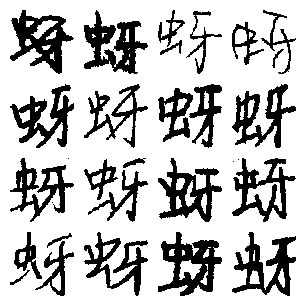 蚜蚜蚜蚜
蚜蚜蚜蚜
蚜蚜蚜蚜
蚜蚜蚜蚜